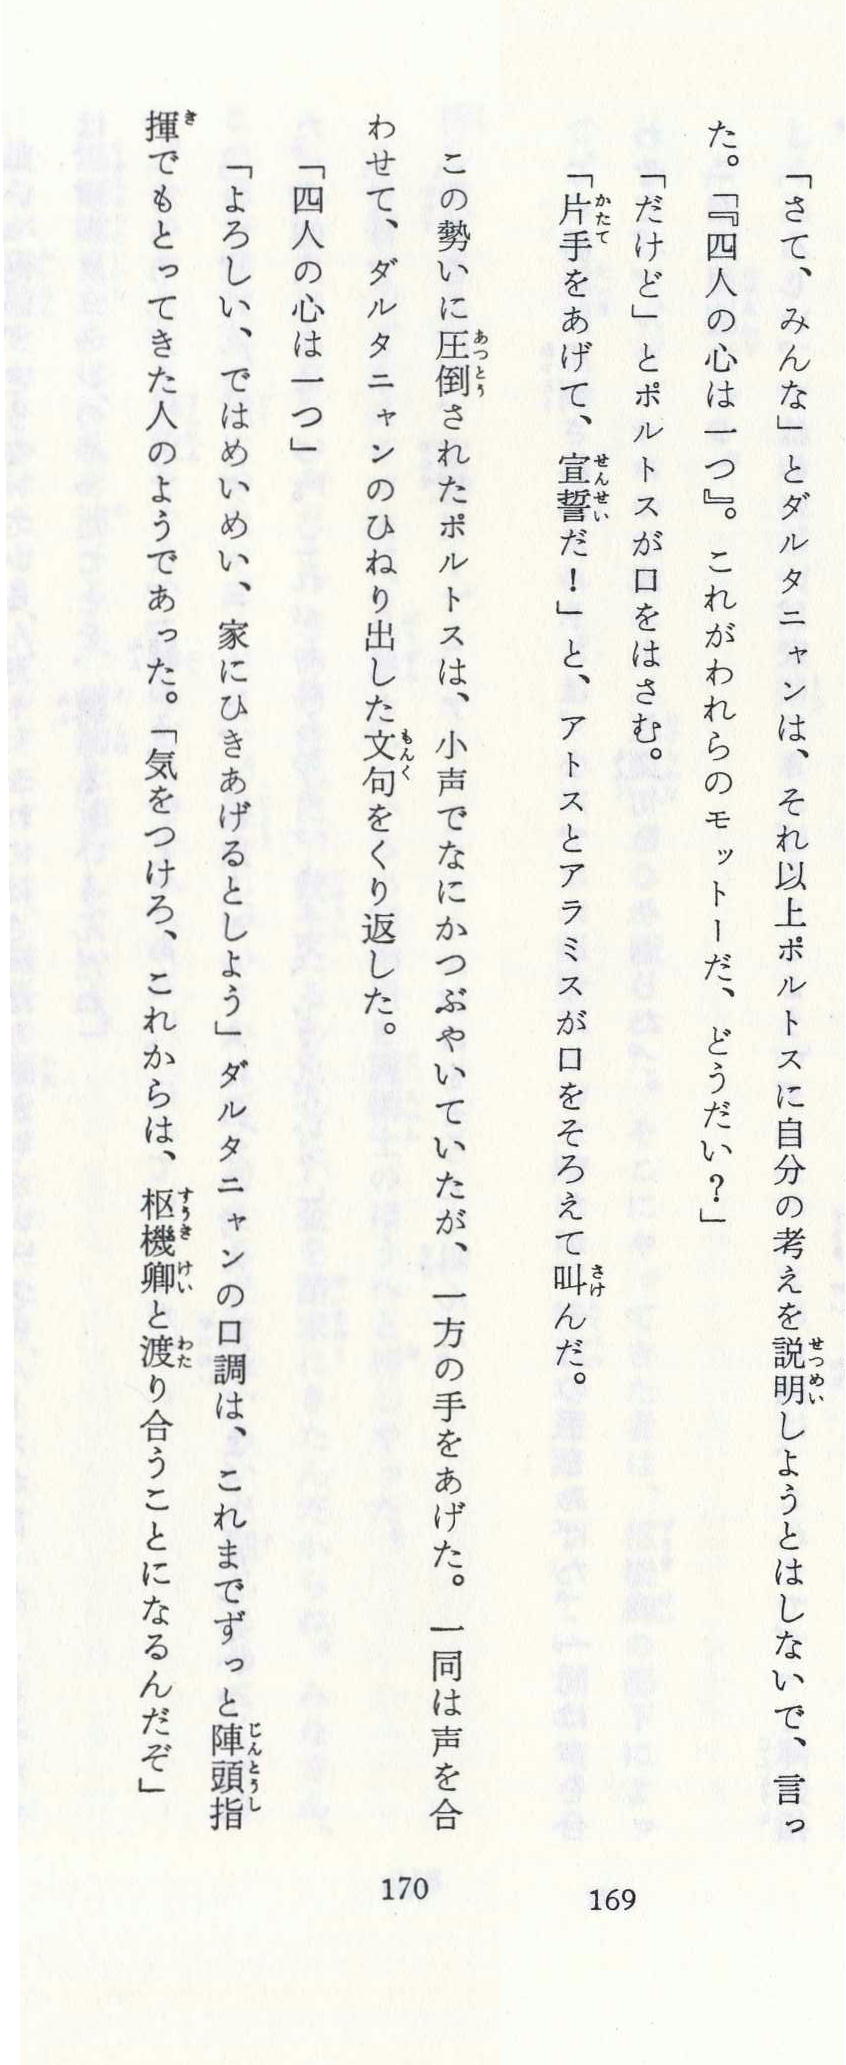 「さて、みんな」とダルタニャンは、それ以上ポルトスに自分の考えを説明しようとはしないで、言っ
た。「『四人の心は一つ』。これがわれらのモットーだ、どうだい？」
「だけど」とポルトスが口をはさむ。
「片手をあげて、宣誓だ！」と、アトスとアラミスが口をそろえて叫んだ。
169
この勢いに圧倒されたポルトスは、小声でなにかつぶやいていたが、一方の手をあげた。一同は声を合
わせて、ダルタニャンのひねり出した文句をくり返した。
「四人の心は一つ」
「よろしい、ではめいめい、家にひきあげるとしよう」ダルタニャンの口調は、これまでずっと陣頭指
揮でもとってきた人のようであった。「気をつけろ、これからは、枢機卿と渡り合うことになるんだぞ」
170